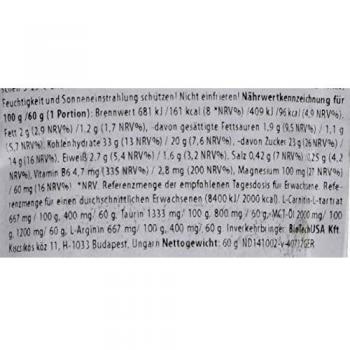 Feuchtigkeit und Sonneneinstrahlung schützen! Nicht einfrieren! Nährwertkennzeichnung für
100 g /60 g (1 Portion): Brennwert 681 kJ /161 kcal (8 *NRV%) /409 kJ /96kcal (4,9 NRV%),
Fett 2 g (2,9 NRV%) /1,2 g (1,7 NRV%), -davon gesättigte Fettsäuren 1,9 g (9,5 NRV%) /1,1 g
(5,7 NRV%), Kohlenhydrate 33 g (13 NRV%) / 20 g (7,6 NRV%), -davon Zucker 23 g (26 NRV%)
/14 g (16 NRV%), Eiweiß 2,7 g (5,4 NRV%) /1,6 g (3,2 NRV%), Salz 0,42 g (7 NRV%) /0,25 g (4,2
NRV%), Vitamin B6 4,7 mg (335 NRV%) / 2,8 mg (200 NRV%), Magnesium 100 mg (27 NRV%)
/ 60 mg (16 NRV%) *NRV: Referenzmenge der empfohlenen Tagesdosis für Erwachsene. Refe-
renzmenge für einen durchschnittlichen Erwachsenen (8400 kJ/ 2000 kcal). L-Carnitin-L-tartrat
667 mg / 100 g, 400 mg/ 60 g, Taurin 1333 mg/ 100 g, 800 mg/ 60 g, MCT-Öl 2000 mg/ 100
g, 1200 mg/ 60 g, L-Arginin 667 mg/ 100 g, 400 mg/ 60 g, Inverkehrbringer: BioTechUSA Kft.
Kiscsikós köz 11, H-1033 Budapest, Ungarn Nettogewicht: 60 g